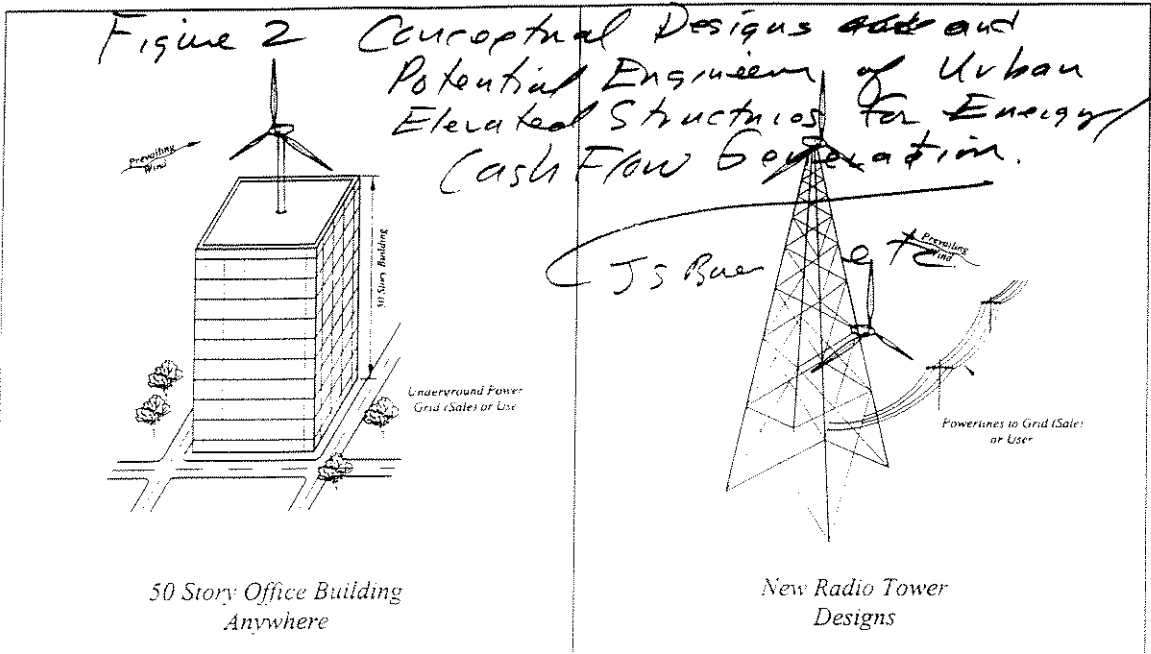 Figure 2 Conceptual Designs and
Potential Engineery of Urban
Elevated Structures for Energy/
Cash Flow Generation.
Prevailing
Wind
50 Story Building
Underground Power
Grid (Sale) or Use
50 Story Office Building
Anywhere
JS
Prevailing
Wind
Powerlines to Grid (Sale)
or User
New Radio Tower
Designs